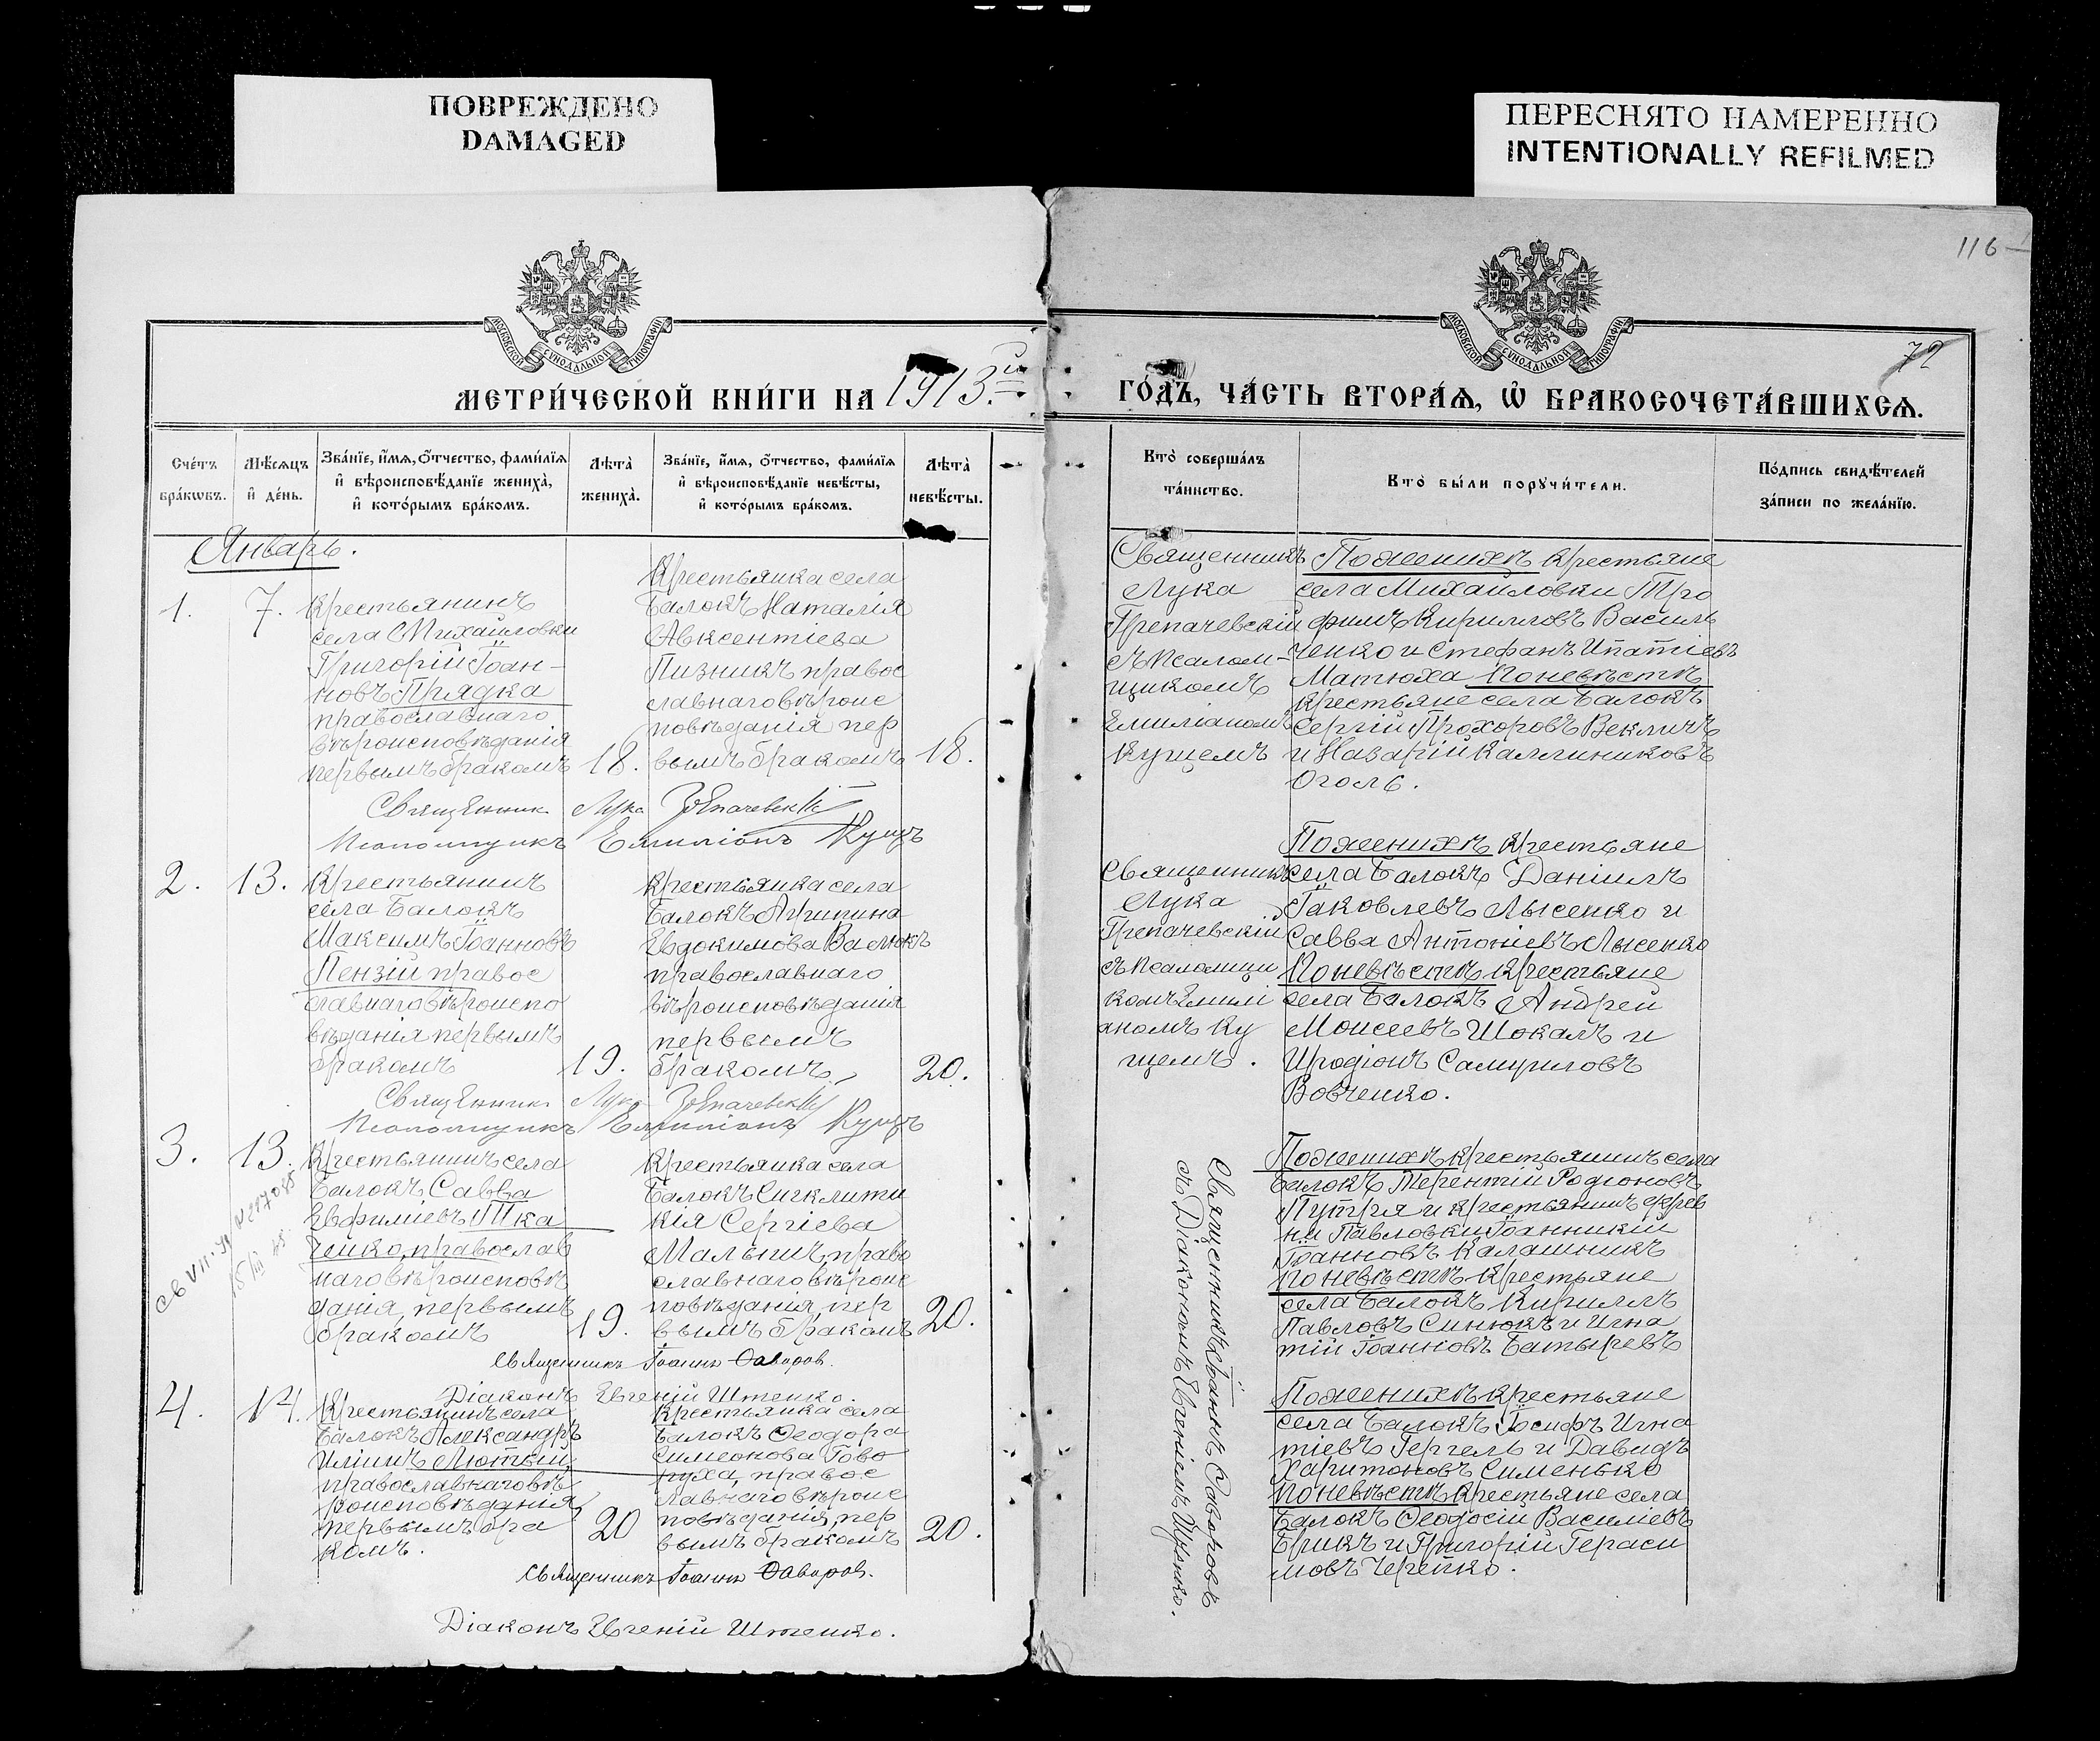 ПОВРЕЖДЕНО
DAMAGED
ПЕРЕСНЯТО НАМЕРЕННО
INTENTIONALLY REFILMED
116
72
МОСКОВСКОЙ СУНОДАЛЬНОЙ ТИПОГРАФІИ
МОСКОВСКОЙ СУНОДАЛЬНОЙ ТИПОГРАФІИ
МЕТРИ́ЧЕСКОЙ КНИ́ГИ НА 1913.й
ГО́ДЪ, ЧА́СТЬ ВТОРА́Ѧ, Ѽ БРАКОСОЧЕТА́ВШИХСѦ.
Сче́тъ
бра́кѡвъ.
Мѣ́сѧцъ
и҆ де́нь.
Зва́нїе, и҆́мѧ, ѻ҆́тчество, фами́лїѧ
и҆ вѣроисповѣ́данїе жениха̀,
и҆ кото́рымъ бра́комъ.
Лѣ́та̀
жениха̀.
Зва́нїе, и҆́мѧ, ѻ҆́тчество, фами́лїѧ
и҆ вѣроисповѣ́данїе невѣ́сты,
и҆ кото́рымъ бра́комъ.
Лѣ́та̀
невѣ́сты.
Кто̀ соверша́лъ
та́инство.
Кто̀ бы́ли порꙋчи́тели.
По́дпись свидѣ́телей
за́писи по жела́нїю.
Январь.
1.
7.
Крестьянинъ
села Михайловки
Григорій Іоан-
новъ Прядка
православнаго
вѣроисповѣданія
первымъ бракомъ
18.
Крестьянка села
Балокъ Наталія
Авксентіева
Пизникъ правос
славнаго вѣроис
повѣданія пер
вымъ бракомъ
18.
Священникъ
Лука
Препачевскій
съ псалом-
щикомъ
Емиліаномъ
Куцемъ
По женихѣ крестьяне
села Михайловки Тро
фимъ Кирилловъ Василь
ченко и Стефанъ Ипатіевъ
Матюха По невѣстѣ
крестьяне села Балокъ
Сергій Прохоровъ Векличъ
и Назарій Каллиниковъ
Оголь.
Священник Лука
Псаломщикъ Емиліанъ Куцъ
2.
13.
Крестьянинъ
села Балокъ
Максимъ Іоанновъ
Пензій правос
славнаго вѣроиспо
вѣданія первымъ
бракомъ
19.
Крестьянка села
Балокъ Агрипина
Евдокимова Валюкъ
православнаго
вѣроисповѣданія
первымъ
бракомъ
20.
Священникъ
Лука
Препачевскій
съ псаломщи
комъ Емилі
аномъ Ку
цемъ.
По женихѣ крестьяне
села Балокъ Даніилъ
Іаковлевъ Лысенко и
Савва Антоніевъ Лысенко
По невѣстѣ крестьяне
села Балокъ Андрей
Моисеевъ Шокалъ и
Иродіонъ Самуиловъ
Вовченко.
Священник Лука
Псаломщикъ Емиліанъ Куцъ
3.
13.
Крестьянинъ села
Балокъ Савва
Евфиміевъ Тка
ченко, православ
наго вѣроисповѣ
данія, первымъ
бракомъ
19.
Крестьянка села
Балокъ Сигклити
кія Сергіева
Мальничъ, право
славнаго вѣроис
повѣданія, пер
вымъ бракомъ
20.
Священникъ Іоаннъ Фаворовъ
съ Діакономъ Евгеніемъ
По женихѣ крестьянинъ села
Балокъ Терентій Родіоновъ
Путря и крестьянинъ дерев
ни Павловки Іоанникій
Іоанновъ Калашникъ
По невѣстѣ крестьяне
села Балокъ Кириллъ
Павловъ Синюкъ и Игна
тій Іоанновъ Батыревъ
Священникъ Іоаннъ Фаворов.
Діаконъ Евгеній
4.
14.
Крестьянинъ села
Балокъ Александръ
Иліинъ Лютый,
православнаго вѣ
роисповѣданія,
первымъ бра
комъ.
20
Крестьянка села
Балокъ Ѳеодора
Симеонова Гово
руха, правос
лавнаго вѣроис
повѣданія, пер
вымъ бракомъ
20.
По женихѣ крестьяне
села Балокъ Іосифъ Игна
тіевъ Гергель и Давидъ
Харитоновъ Сименько
По невѣстѣ крестьяне села
Балокъ Ѳеодосій Василіевъ
Брикъ и Григорій Гераси
мовъ Черейко.
Священникъ Іоаннъ Фаворов.
Діаконъ Евгеній